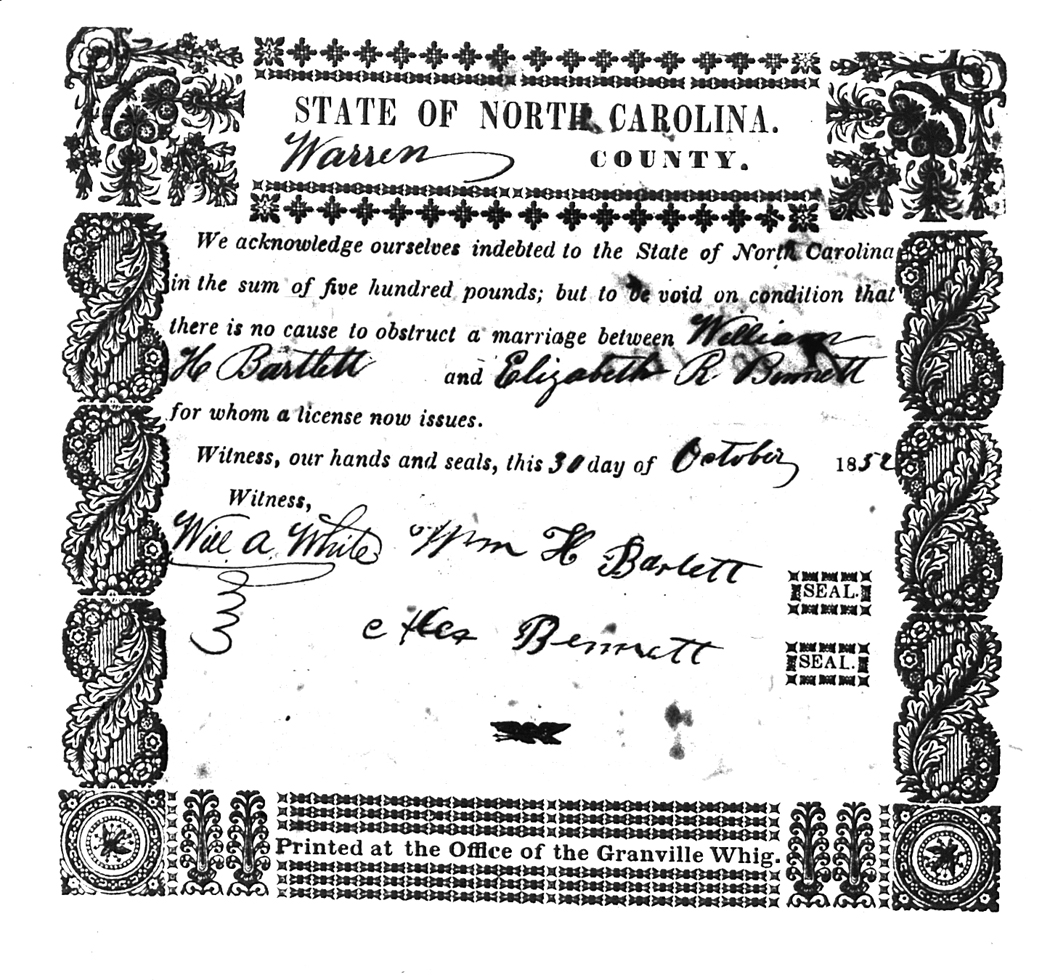 STATE OF NORTH CAROLINA.
Warren COUNTY.
We acknowledge ourselves indebted to the State of North Carolina
in the sum of five hundred pounds; but to be void on condition that
there is no cause to obstruct a marriage between William
H Bartlett and Elizabeth R Bennett
for whom a license now issues.
Witness, our hands and seals, this 30 day of October 1852
Witness,
Will A. White Wm H Barlett
SEAL.
Bennett
SEAL.
Printed at the Office of the Granville Whig.